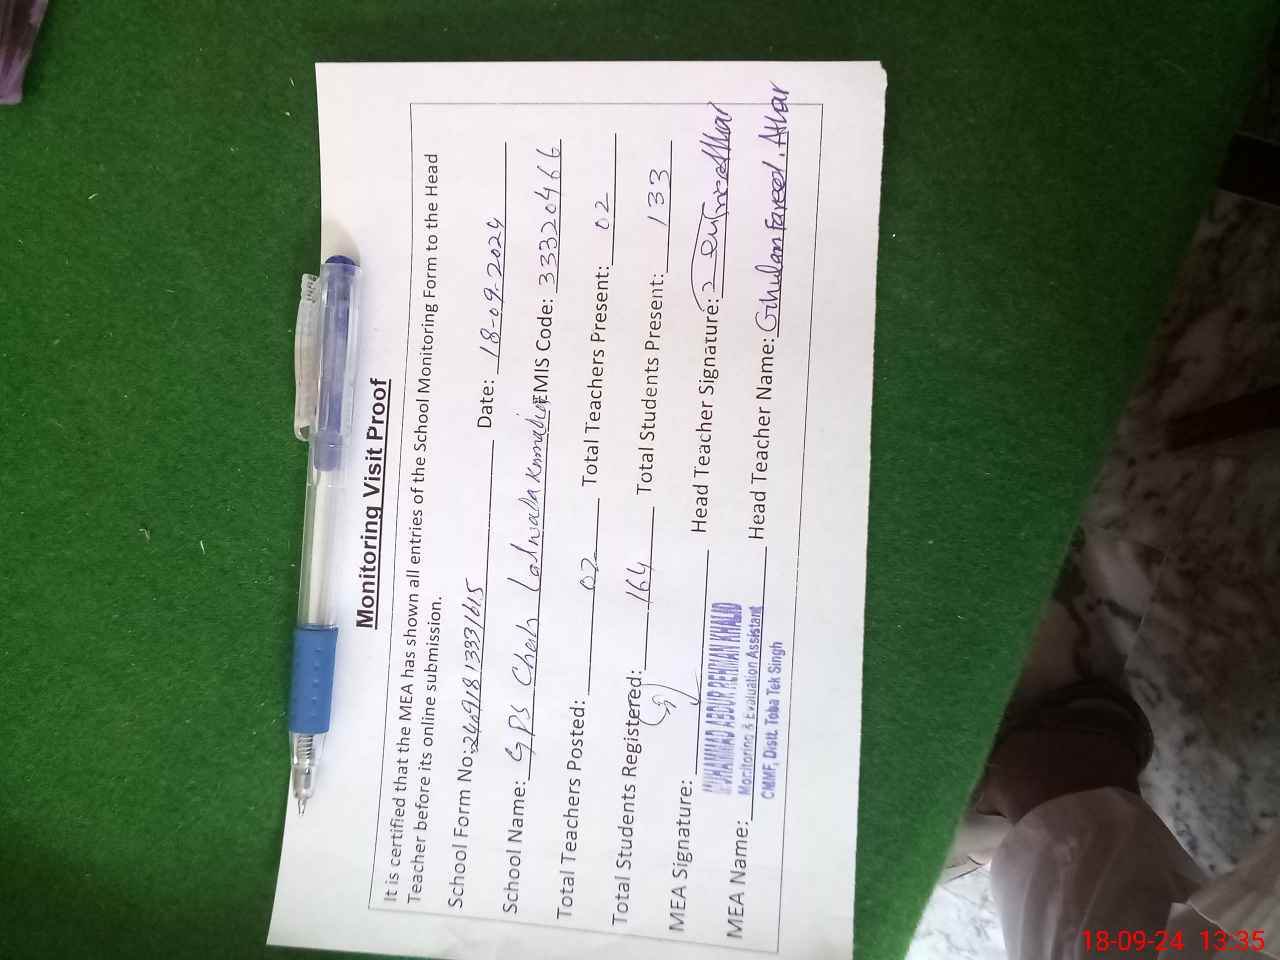 Monitoring Visit Proof
It is certified that the MEA has shown all entries of the School Monitoring Form to the Head
Teacher before its online submission.
School Form No: Date: 18-09-2024
School Name: GPS Chah EMIS Code: 33320466
Total Teachers Posted: 02 Total Teachers Present: 02
Total Students Registered: 164 Total Students Present: 133
MEA Signature: Head Teacher Signature:
MUHAMMAD ABDUR REHMAN KHALID
MEA Name: Monitoring & Evaluation Assistant Head Teacher Name: Ghulam Fareed. Athar
CMMF, Distt. Toba Tek Singh
18-09-24 13:35